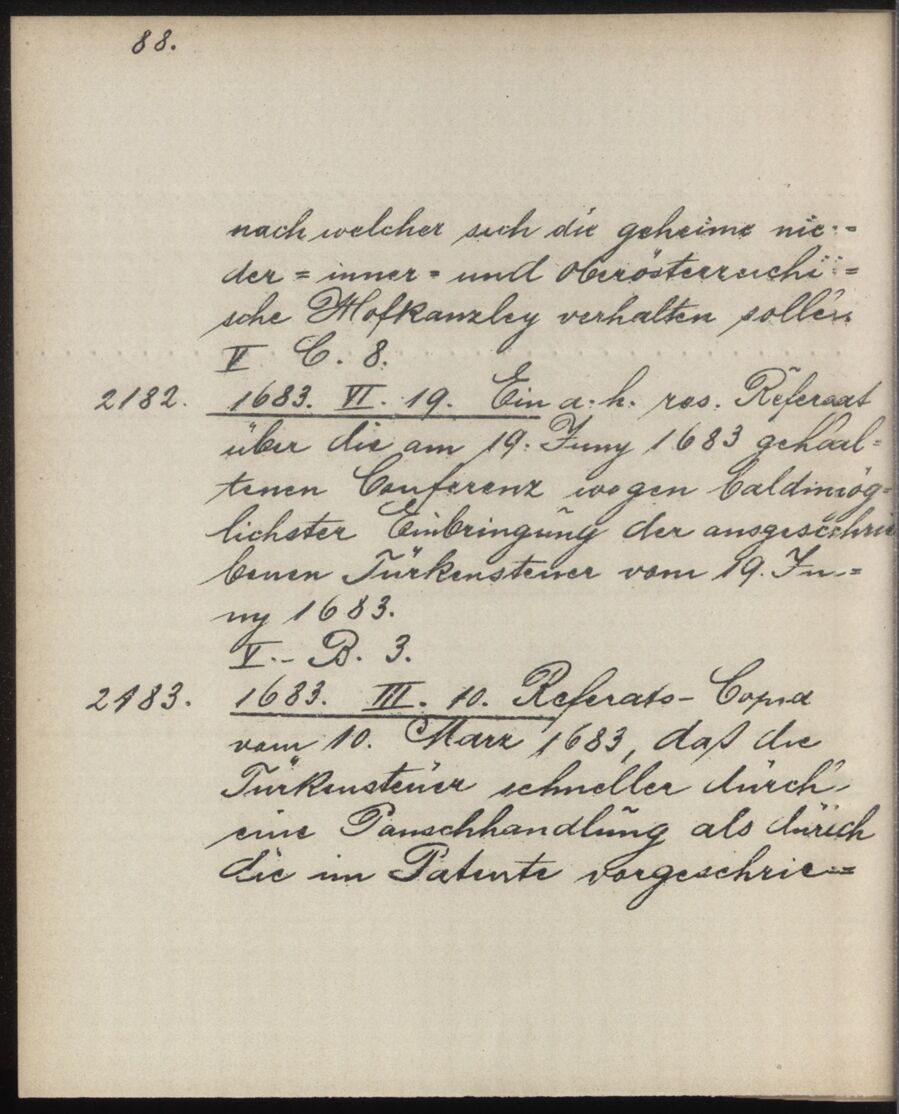 88.
nach welcher sich die geheime nie=
der = inner = und oberösterreichi=
sche Hofkanzley verhalten sollen
V C. 8.
2182. 1683. VI. 19. Ein a. h. res. Referat
über die am 19. Juny 1683 gehal=
tenen Conferenz wegen baldmög=
lichster Einbringung der ausgeschrie
benen Türkensteuer vom 19. Ju=
ny 1683.
V.- B. 3.
2183. 1683. III. 10. Referats-Copia
vom 10. März 1683, daß die
Türkensteuer schneller durch
eine Pauschhandlung als durch
die im Patente vorgeschrie=